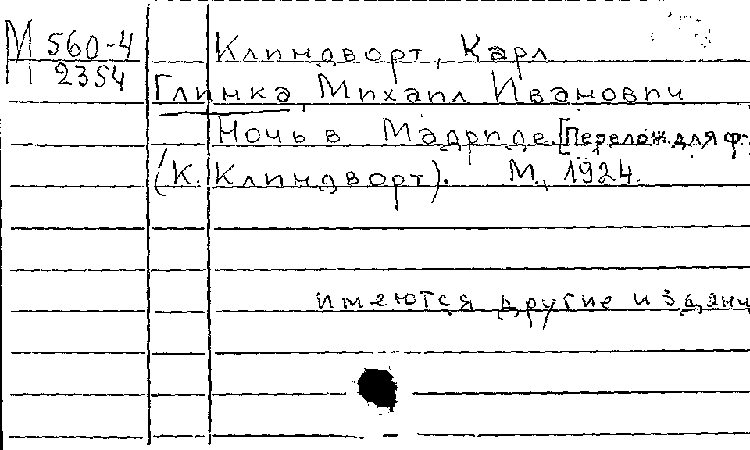 М 560-4 Клиндворт, Карл
2354
Глинка, Михаил Иванович
Ночь в Мадриде. [Перелож. для ф.
(К. Клиндворт). М., 1924.
имеются другие издани